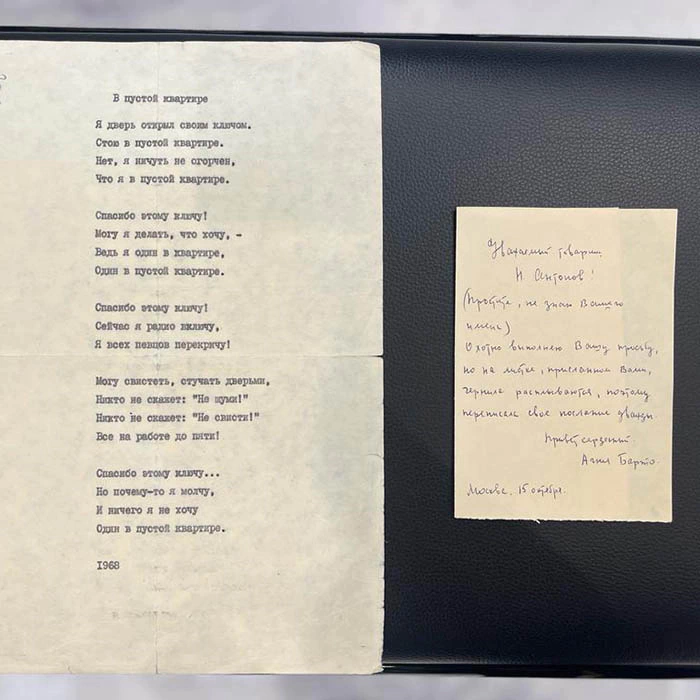 В пустой квартире
Я дверь открыл своим ключом.
Стою в пустой квартире.
Нет, я ничуть не огорчен,
Что я в пустой квартире.
Спасибо этому ключу!
Могу я делать, что хочу, -
Ведь я один в квартире,
Один в пустой квартире.
Спасибо этому ключу!
Сейчас я радио включу,
Я всех певцов перекричу!
Могу свистеть, стучать дверьми,
Никто не скажет: "Не шуми!"
Никто не скажет: "Не свисти!"
Все на работе до пяти!
Спасибо этому ключу...
Но почему-то я молчу,
И ничего я не хочу
Один в пустой квартире.
1968
Уважаемый товарищ
Н. Антонов!
(Простите, не знаю Вашего
имени)
Охотно выполняю Вашу просьбу,
но на листке, присланном Вами,
чернила расплываются, поэтому
переписала свое послание дважды.
Привет сердечный.
Агния Барто.
Москва. 15 октября.